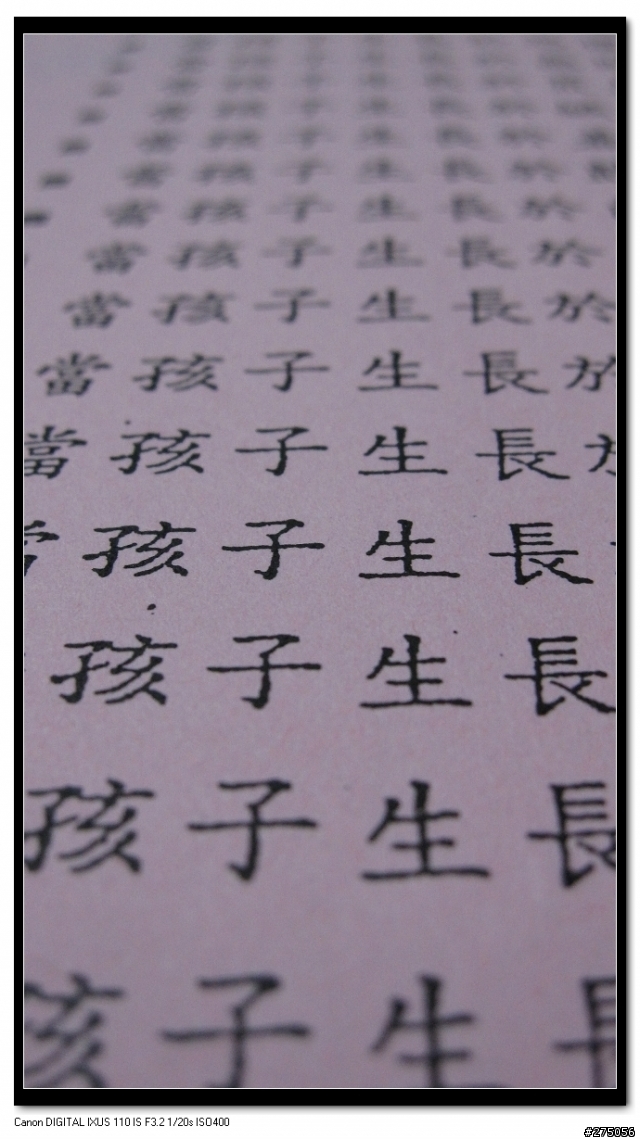 當孩子生長於
當孩子生長於
當孩子生長於
當孩子生長於
當孩子生長於
當孩子生長
孩子生長
孩子生長
孩子生長
孩子生長
Canon DIGITAL IXUS 110 IS F3.2 1/20s ISO400
#275056